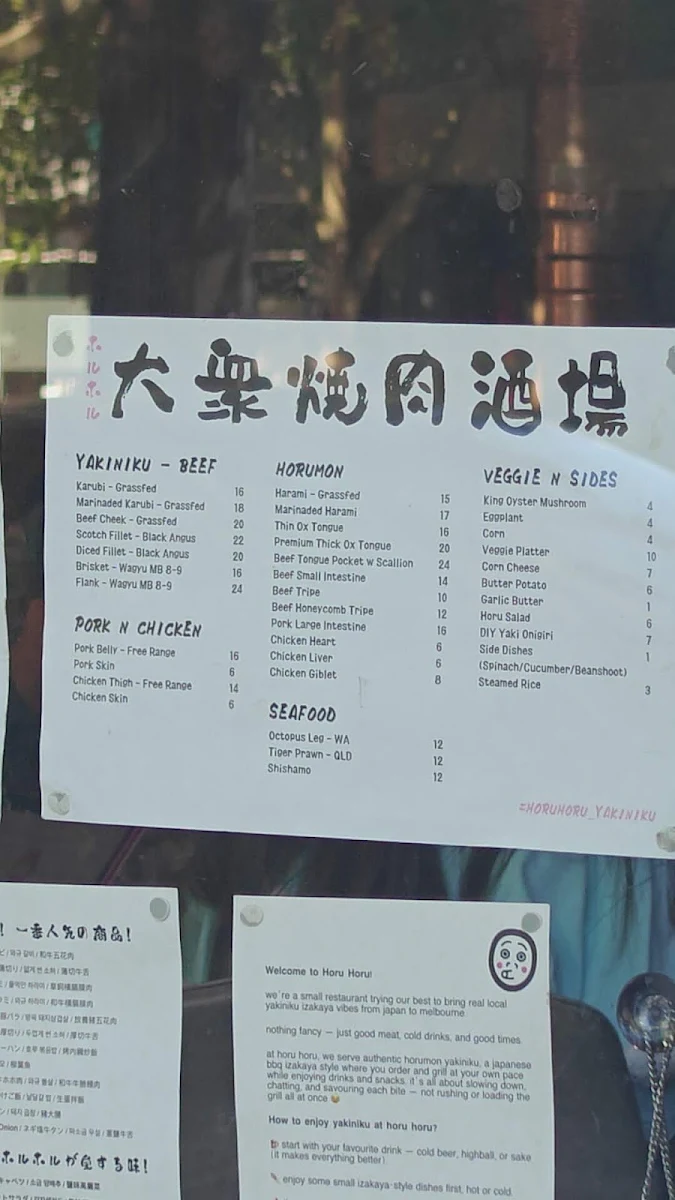 ホルホル
大衆焼肉酒場
YAKINIKU - BEEF
Karubi - Grassfed 16
Marinaded Karubi - Grassfed 18
Beef Cheek - Grassfed 20
Scotch Fillet - Black Angus 22
Diced Fillet - Black Angus 20
Brisket - Wagyu MB 8-9 16
Flank - Wagyu MB 8-9 24
PORK N CHICKEN
Pork Belly - Free Range 16
Pork Skin 6
Chicken Thigh - Free Range 14
Chicken Skin 6
HORUMON
Harami - Grassfed 15
Marinaded Harami 17
Thin Ox Tongue 16
Premium Thick Ox Tongue 20
Beef Tongue Pocket w Scallion 24
Beef Small Intestine 14
Beef Tripe 10
Beef Honeycomb Tripe 12
Pork Large Intestine 16
Chicken Heart 6
Chicken Liver 6
Chicken Giblet 8
SEAFOOD
Octopus Leg - WA 12
Tiger Prawn - QLD 12
Shishamo 12
VEGGIE N SIDES
King Oyster Mushroom 4
Eggplant 4
Corn 4
Veggie Platter 10
Corn Cheese 7
Butter Potato 6
Garlic Butter 1
Horu Salad 6
DIY Yaki Onigiri 7
Side Dishes 1
(Spinach/Cucumber/Beanshoot)
Steamed Rice 3
#HORUHORU_YAKINIKU
! 一番人気の商品!
和牛五花肉
薄切り / 薄切牛舌
和牛横膈膜肉
厚切り / 厚切牛舌
Onion / ネギ塩牛タン
ホルホルが愛する味!
Welcome to Horu Horu!
we're a small restaurant trying our best to bring real local
yakiniku izakaya vibes from japan to melbourne.
nothing fancy — just good meat, cold drinks, and good times.
at horu horu, we serve authentic horumon yakiniku, a japanese
bbq izakaya style where you order and grill at your own pace
while enjoying drinks and snacks. it's all about slowing down,
chatting, and savouring each bite — not rushing or loading the
grill all at once
How to enjoy yakiniku at horu horu?
start with your favourite drink — cold beer, highball, or sake
(it makes everything better).
enjoy some small izakaya-style dishes first, hot or cold.